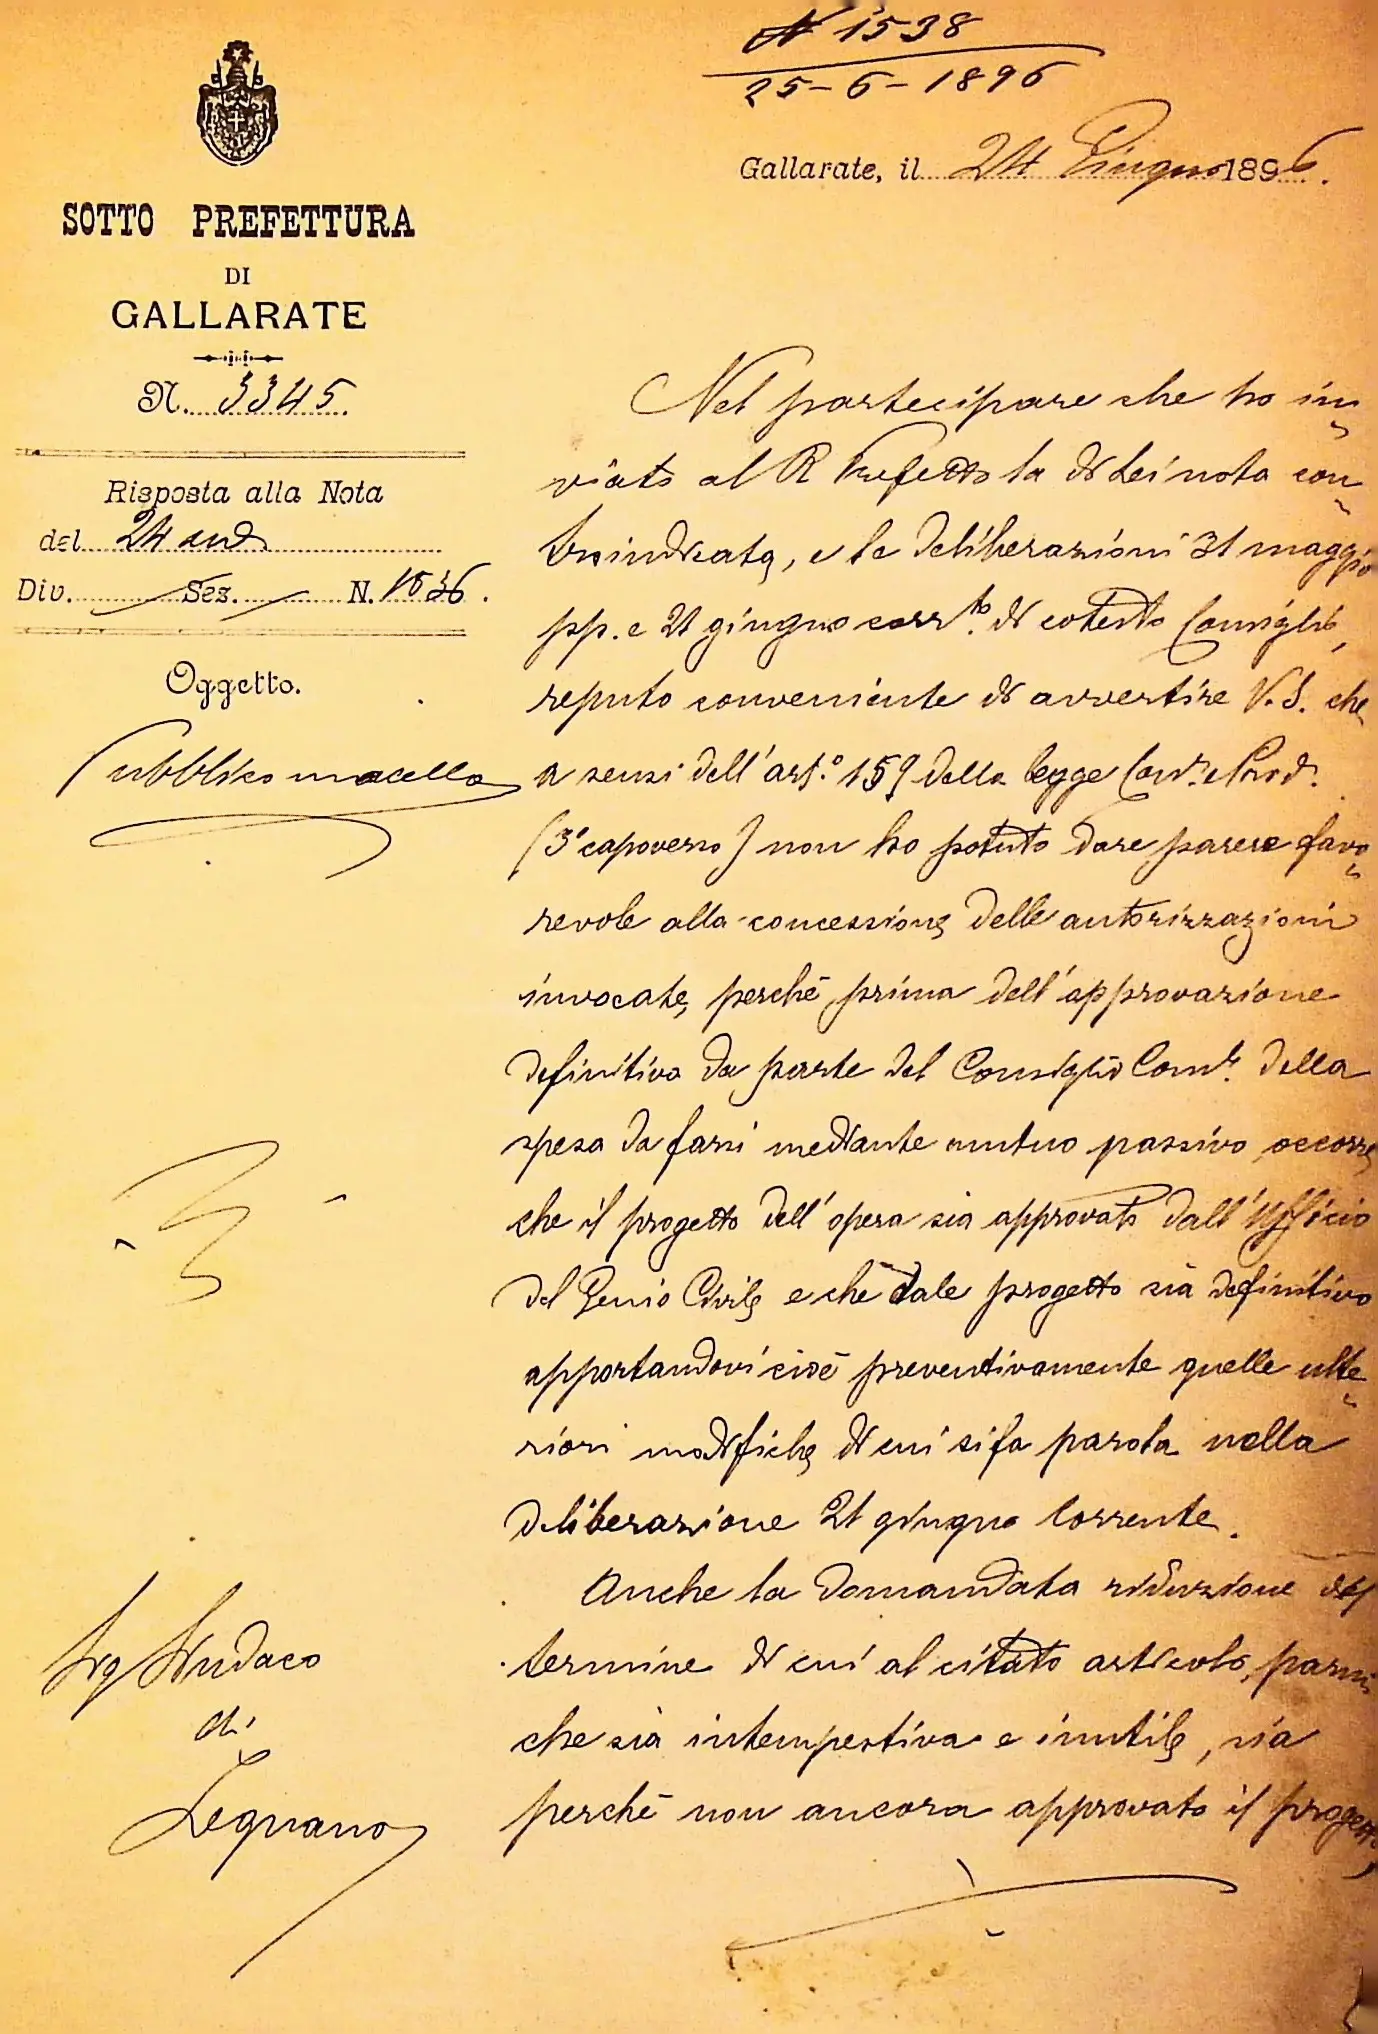 N 1538
25-6-1896
Gallarate, il 24 Giugno 1896.
SOTTO PREFETTURA
DI
GALLARATE
N. 3345.
Risposta alla Nota
del 24 and
Div. Sez. N. 1536.
Oggetto.
Pubblico macello
Nel partecipare che ho in-
viato al R Prefetto la di Lei nota con-
troindicata, e le deliberazioni 31 maggio
pp. e 21 giugno corr.to di cotesto Consiglio,
reputo conveniente di avvertire V.S. che
a sensi dell'art.o 159 della legge Com.le e Prov.le
(3o capoverso) non ho potuto dare parere favo-
revole alla concessione delle autorizzazioni
invocate, perchè prima dell'approvazione
definitiva da parte del Consiglio Com.le della
spesa da farsi mediante mutuo passivo, occorre
che il progetto dell'opera sia approvato dall'Ufficio
del Genio Civile e che tale progetto sia definitivo
apportandovi cioè preventivamente quelle ulte-
riori modifiche di cui si fa parola nella
deliberazione 21 giugno corrente.
Anche la domandata riduzione del
termine di cui al citato articolo, parmi
che sia intempestiva e inutile, sia
perchè non ancora approvato il progetto,
Sig Sindaco
di
Legnano